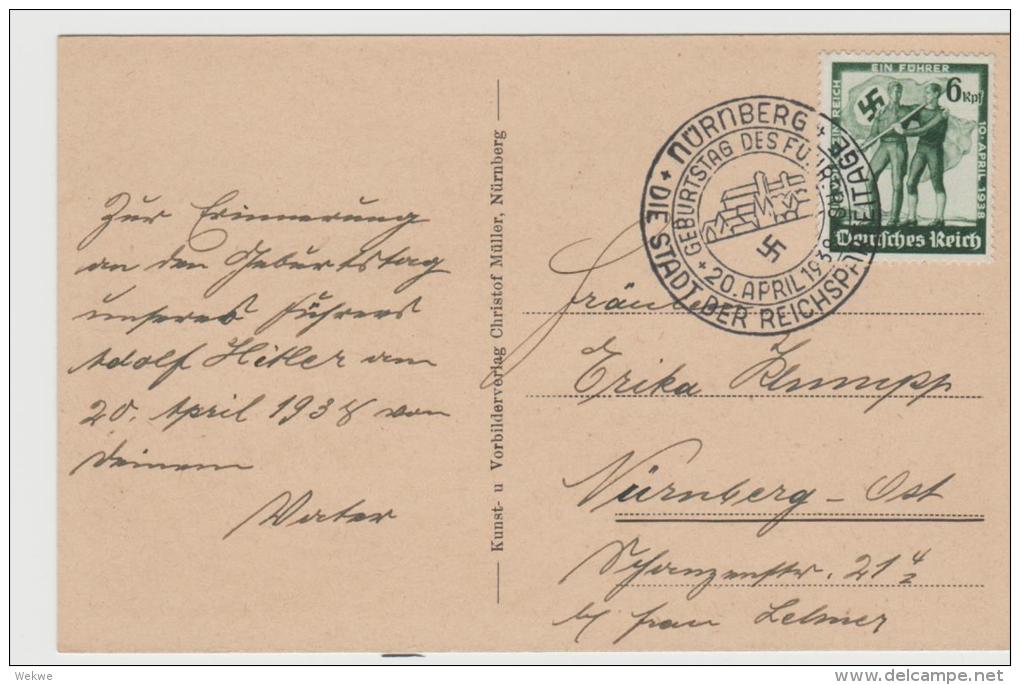 Zur Erinnerung
an den Geburtstag
unseres Führers
Adolf Hitler am
20. April 1938 von
Deinem
Vater
Kunst- u Vorbilderverlag Christof Müller, Nürnberg
NÜRNBERG + DIE STADT DER REICHSPARTEITAGE +
GEBURTSTAG DES FÜHRERS + 20. APRIL 1938
EIN FÜHRER
EIN REICH
10. APRIL 1938
6 Rpf
Deutsches Reich
Fräulein
Erika Klumpp
Nürnberg-Ost
Schanzenstr. 21 4/2
b/ Frau Lelmer
Wekwe
delcampe.net